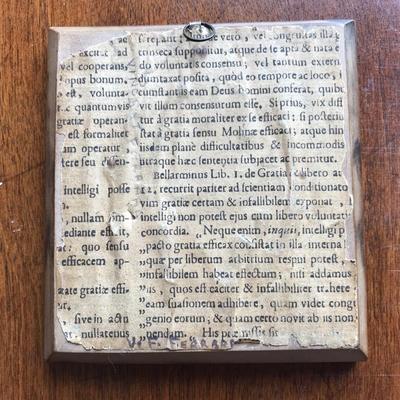 ac
excitat ad
vel cooperans,
opus bonum,
est, volunta-
quantumvis
gratiæ operan-
est formaliter
um operatur
tere seu
intelligi posse
nullam sim-
ediante effici,
at: quo sensu
efficacem ap-
gratiæ effi-
sive in actu
nullatenus
vero, vel congruitas illa
supponitur, atque de se apta & nata
do voluntatis consensu; vel tantum extern
dumtaxat posita, quòd eo tempore ac loco,
cumstantis eam Deus homini conferat, quibu
vit illum consensurum esse. Si prius, vix diff
tur à gratia moraliter ex se efficaci; si posteriu
stat à gratia sensu Molinæ efficaci; atque hin
iisdem planè difficultatibus & incommodis
utraque hæc sententia subjacet ac premitur.
Bellarminus Lib. 1. de Gratia & libero
12, recurrit pariter ad scientiam conditionato
vim gratiæ certam & infallibilem exponat,
intelligi non potest ejus cum libero voluntati
concordia. „Neque enim, inquit, intelligi p
„pacto gratia efficax consistat in illa interna
„quæ per liberum arbitrium respui potest,
„infallibilem habeat effectum; nisi addamus
„us, quos est efficere & infallibiliter trahere
„eam suasionem adhibere, quam videt cong
„genio eorum; & quam certo novit ab iis non
„nendam. His præmissis sit